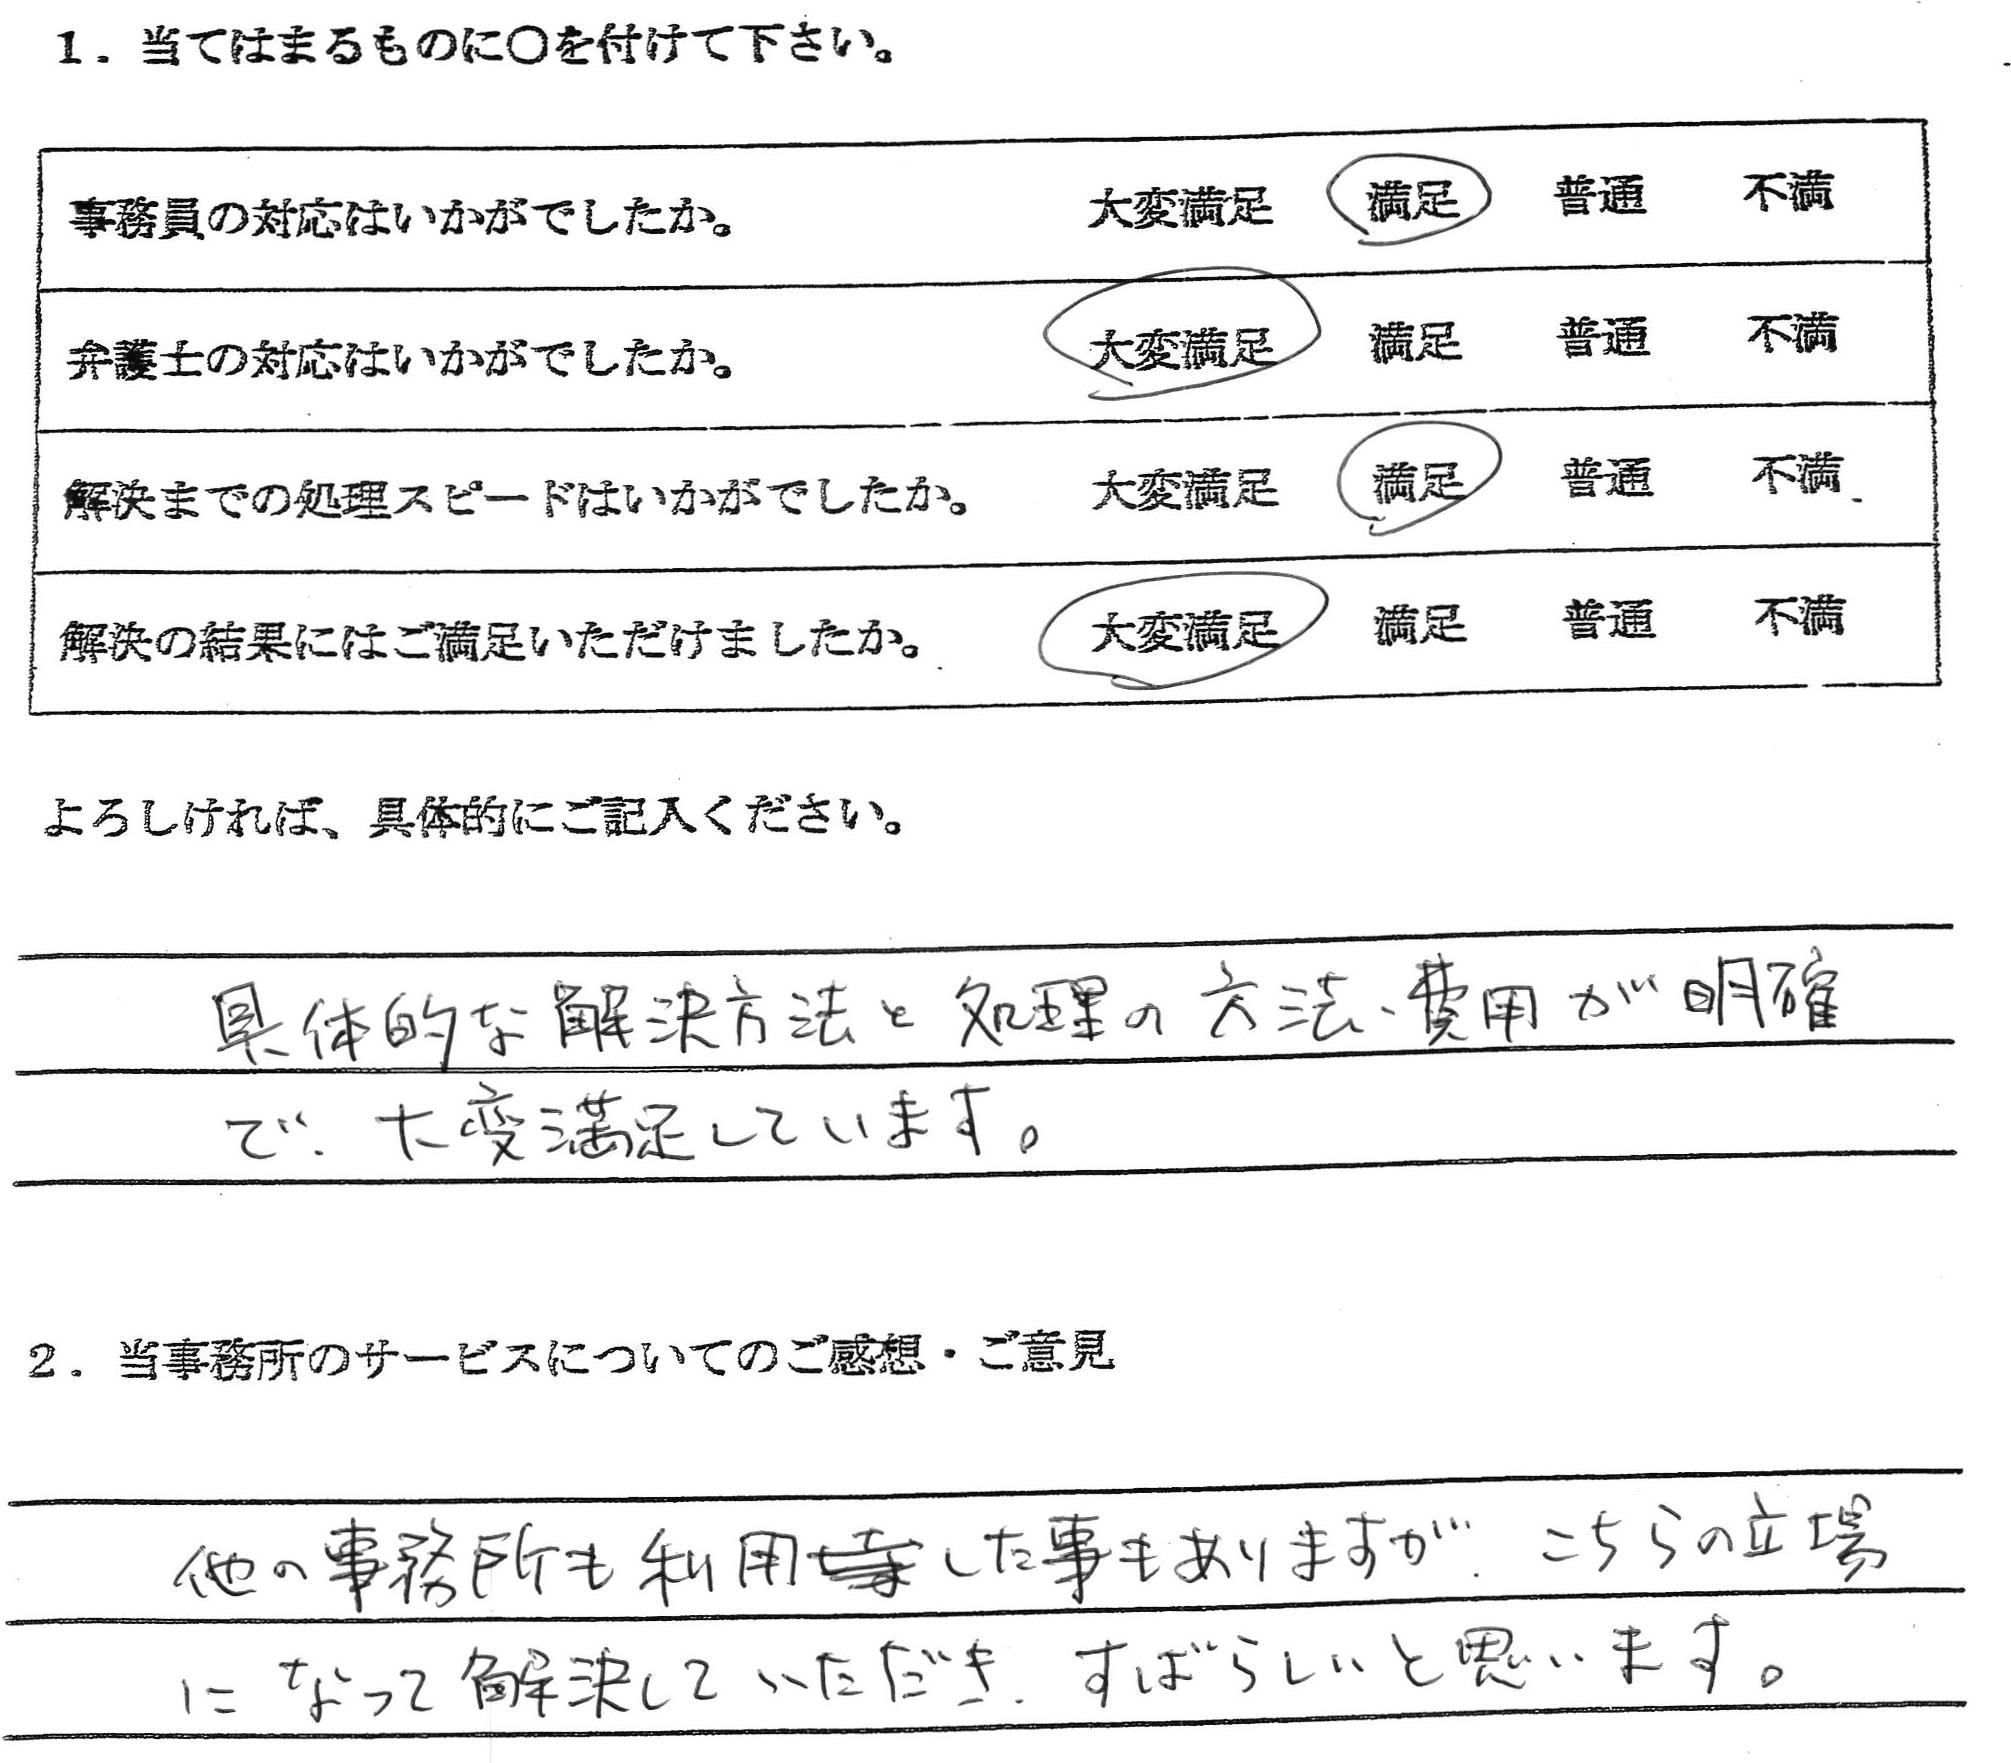 1．当てはまるものに〇を付けて下さい。
事務員の対応はいかがでしたか。 大変満足 満足 普通 不満
弁護士の対応はいかがでしたか。 大変満足 満足 普通 不満
解決までの処理スピードはいかがでしたか。 大変満足 満足 普通 不満
解決の結果にはご満足いただけましたか。 大変満足 満足 普通 不満
よろしければ、具体的にご記入ください。
具体的な解決方法と処理の方法、費用が明確
で、大変満足しています。
2．当事務所のサービスについてのご感想・ご意見
他の事務所も利用した事もありますが、こちらの立場
になって解決していただき、すばらしいと思います。